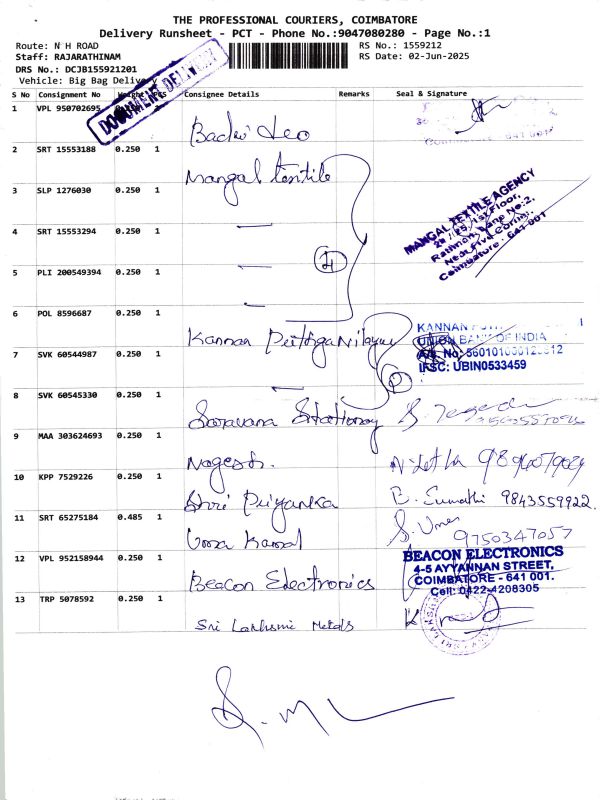 THE PROFESSIONAL COURIERS, COIMBATORE
Delivery Runsheet - PCT - Phone No.:9047080280 - Page No.:1
Route: N H ROAD RS No.: 1559212
Staff: RAJARATHINAM RS Date: 02-Jun-2025
DRS No.: DCJB155921201
Vehicle: Big Bag Delivery
DOCUMENT DELIVERY
S No Consignment No Weight PCS Consignee Details Remarks Seal & Signature
1 VPL 950702695 1 Badri Leo
2 SRT 15553188 0.250 1 Mangal textile
3 SLP 1276030 0.250 1
MANGAL TEXTILE AGENCY
1st Floor,
Lane No:2,
Near Five Corner,
Coimbatore - 641 001
4 SRT 15553294 0.250 1
5 PLI 200549394 0.250 1
6 POL 8596687 0.250 1 Kannan
KANNAN
UNION BANK OF INDIA
IFSC: UBIN0533459
7 SVK 60544987 0.250 1
8 SVK 60545330 0.250 1 Saravana Stationary
9 MAA 303624693 0.250 1 Nagesh.
10 KPP 7529226 0.250 1 Shri Priyanka B. Sumathi 9843559922.
11 SRT 65275184 0.485 1 Uma Kamal S. Uma 9750347057
12 VPL 952158944 0.250 1 Beacon Electronics
BEACON ELECTRONICS
4-5 AYYANNAN STREET,
COIMBATORE - 641 001.
Cell: 0422-4208305
13 TRP 5078592 0.250 1 Sri Lakhsmi Metals